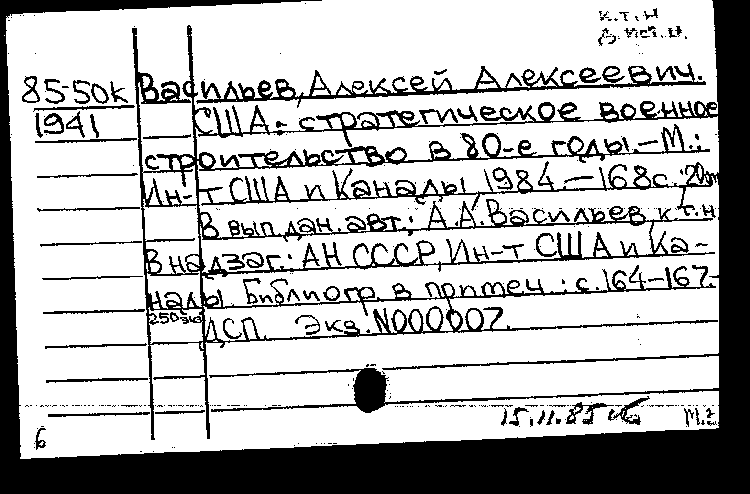 к.т.н
85-50к Васильев, Алексей Алексеевич.
1941 США: стратегическое военное
строительство в 80-е годы.-М.:
Ин-т США и Канады, 1984.-168с.;20см
В вып.дан.авт.: А.А.Васильев, к.т.н
В надзаг.: АН СССР, Ин-т США и Ка-
нады. Библиогр. в примеч.: с.164-167.-
250экз ДСП. Экз.N000007.
15.11.85
6